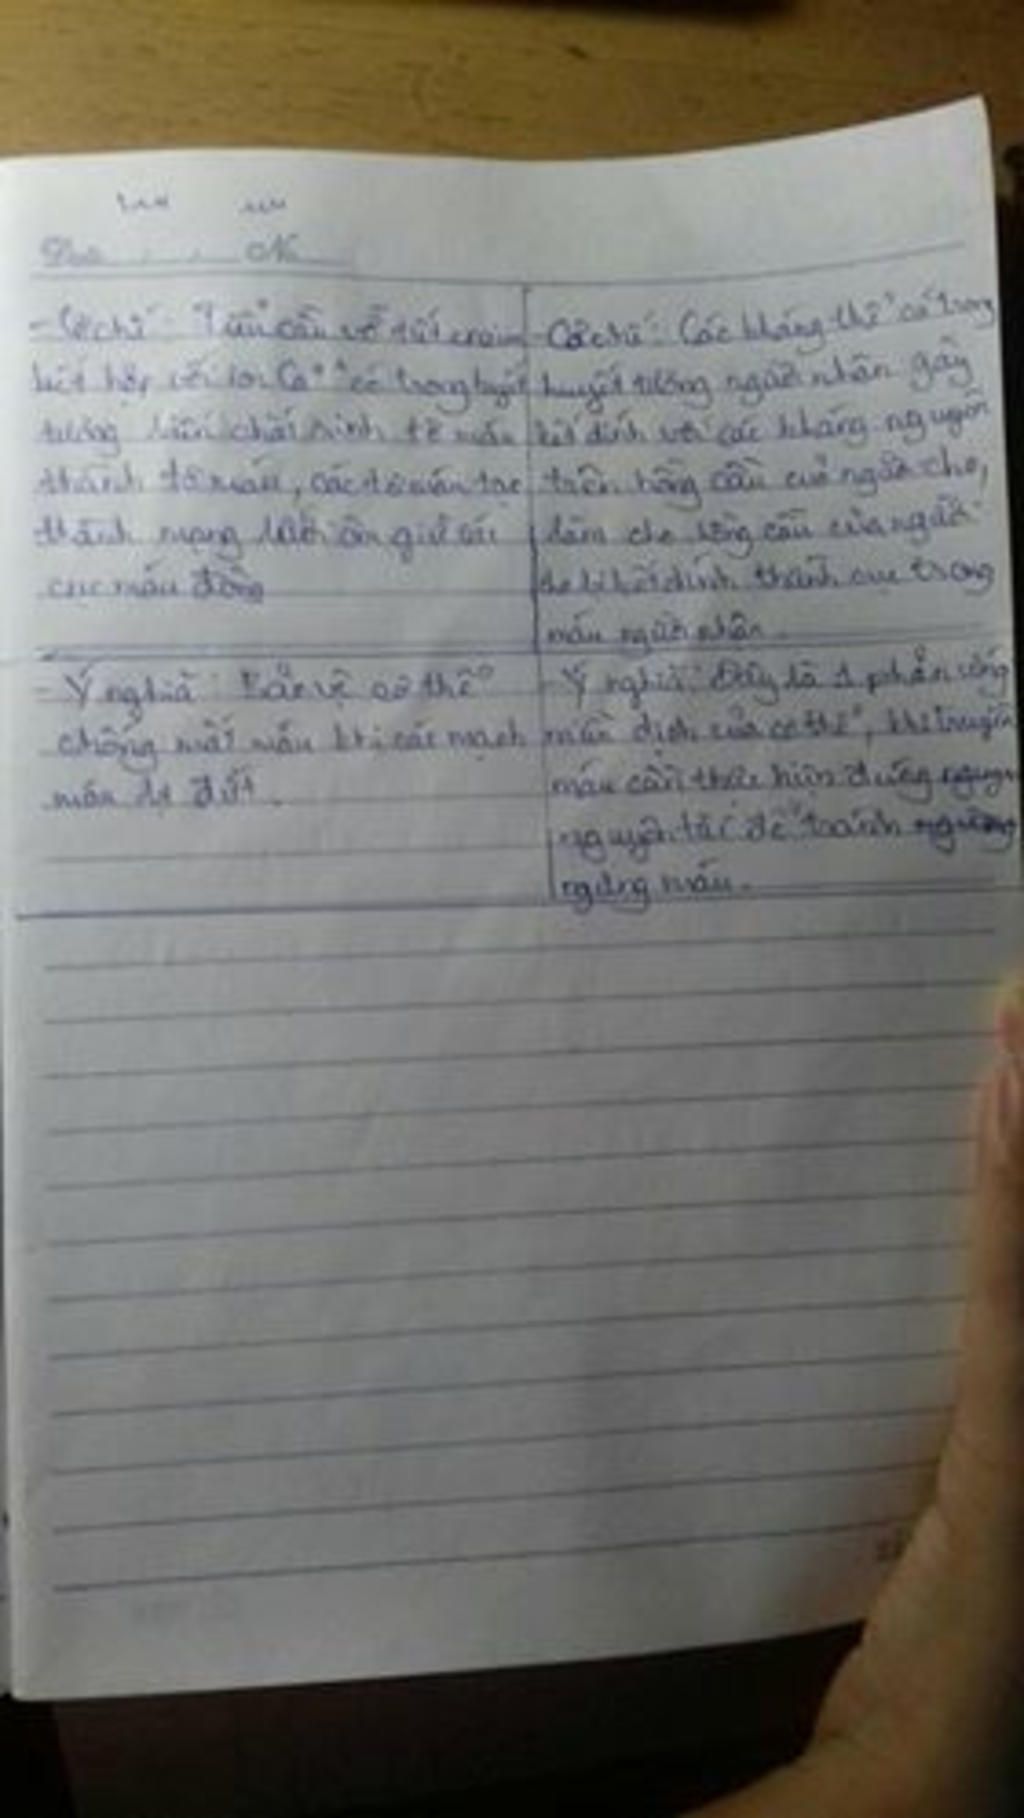 Date No
- Cơ chế : Tiểu cầu vỡ tiết enzim
kết hợp với ion Ca⁺⁺ có trong huyết
tương biến chất sinh tơ máu
thành tơ máu, các tơ máu tạo
thành mạng lưới ôm giữ các
cục máu đông
- Ý nghĩa : Bảo vệ cơ thể
chống mất máu khi các mạch
máu bị đứt.
- Cơ chế : Các kháng thể có trong
huyết tương người nhận gây
kết dính với các kháng nguyên
trên hồng cầu của người cho,
làm cho hồng cầu của người
cho bị kết dính thành cục trong
máu người nhận.
- Ý nghĩa : Đây là 1 phản ứng
miễn dịch của cơ thể, khi truyền
máu cần thực hiện đúng
nguyên tắc để tránh
ngưng máu.